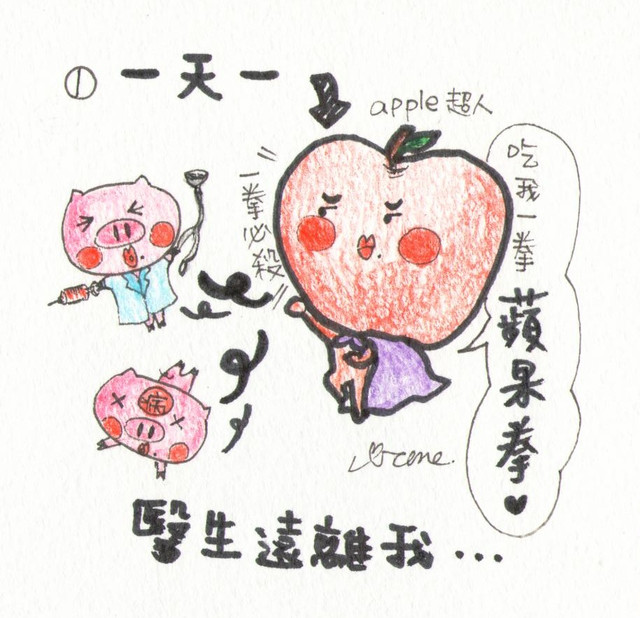 ① 一天一
apple超人
一拳必殺
吃我一拳
蘋果拳♥
病
醫生遠離我...